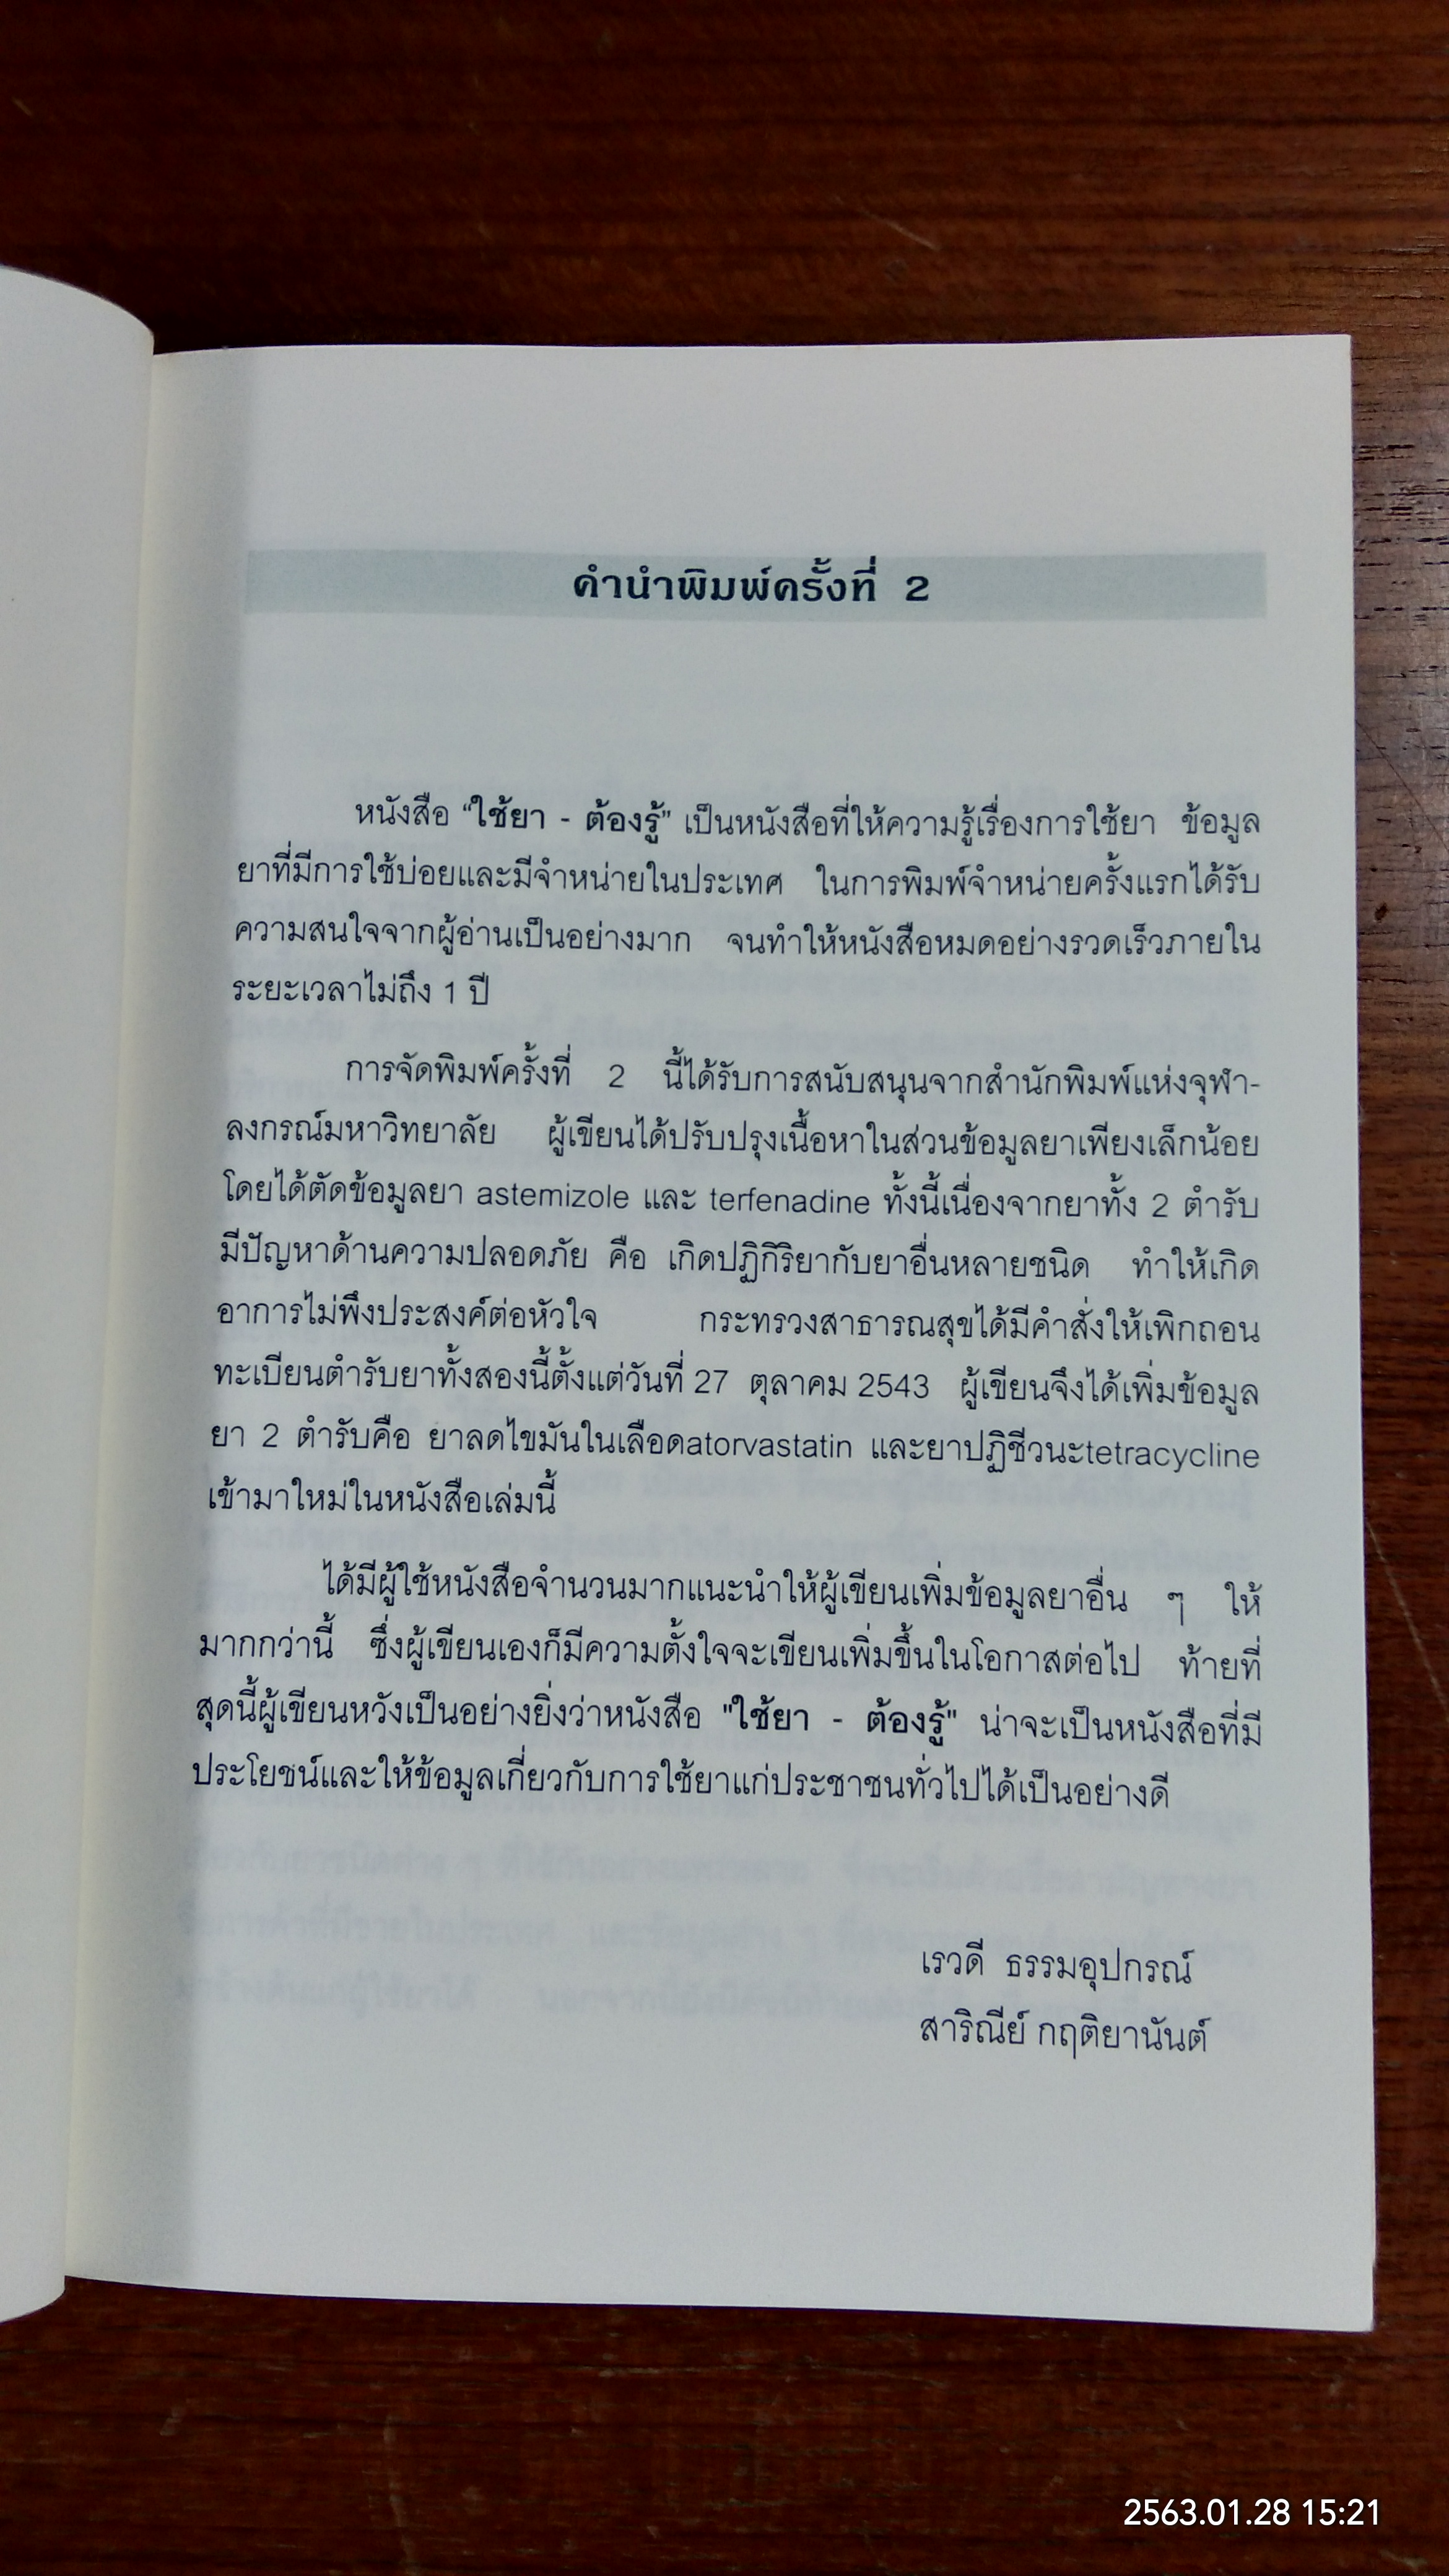 คำนำพิมพ์ครั้งที่ 2
หนังสือ "ใช้ยา - ต้องรู้" เป็นหนังสือที่ให้ความรู้เรื่องการใช้ยา ข้อมูล
ยาที่มีการใช้บ่อยและมีจำหน่ายในประเทศ ในการพิมพ์จำหน่ายครั้งแรกได้รับ
ความสนใจจากผู้อ่านเป็นอย่างมาก จนทำให้หนังสือหมดอย่างรวดเร็วภายใน
ระยะเวลาไม่ถึง 1 ปี
การจัดพิมพ์ครั้งที่ 2 นี้ได้รับการสนับสนุนจากสำนักพิมพ์แห่งจุฬา-
ลงกรณ์มหาวิทยาลัย ผู้เขียนได้ปรับปรุงเนื้อหาในส่วนข้อมูลยาเพียงเล็กน้อย
โดยได้ตัดข้อมูลยา astemizole และ terfenadine ทั้งนี้เนื่องจากยาทั้ง 2 ตำรับ
มีปัญหาด้านความปลอดภัย คือ เกิดปฏิกิริยากับยาอื่นหลายชนิด ทำให้เกิด
อาการไม่พึงประสงค์ต่อหัวใจ กระทรวงสาธารณสุขได้มีคำสั่งให้เพิกถอน
ทะเบียนตำรับยาทั้งสองนี้ตั้งแต่วันที่ 27 ตุลาคม 2543 ผู้เขียนจึงได้เพิ่มข้อมูล
ยา 2 ตำรับคือ ยาลดไขมันในเลือดatorvastatin และยาปฏิชีวนะtetracycline
เข้ามาใหม่ในหนังสือเล่มนี้
ได้มีผู้ใช้หนังสือจำนวนมากแนะนำให้ผู้เขียนเพิ่มข้อมูลยาอื่น ๆ ให้
มากกว่านี้ ซึ่งผู้เขียนเองก็มีความตั้งใจจะเขียนเพิ่มขึ้นในโอกาสต่อไป ท้ายที่
สุดนี้ผู้เขียนหวังเป็นอย่างยิ่งว่าหนังสือ "ใช้ยา - ต้องรู้" น่าจะเป็นหนังสือที่มี
ประโยชน์และให้ข้อมูลเกี่ยวกับการใช้ยาแก่ประชาชนทั่วไปได้เป็นอย่างดี
เรวดี ธรรมอุปกรณ์
สาริณีย์ กฤติยานันต์
2563.01.28 15:21